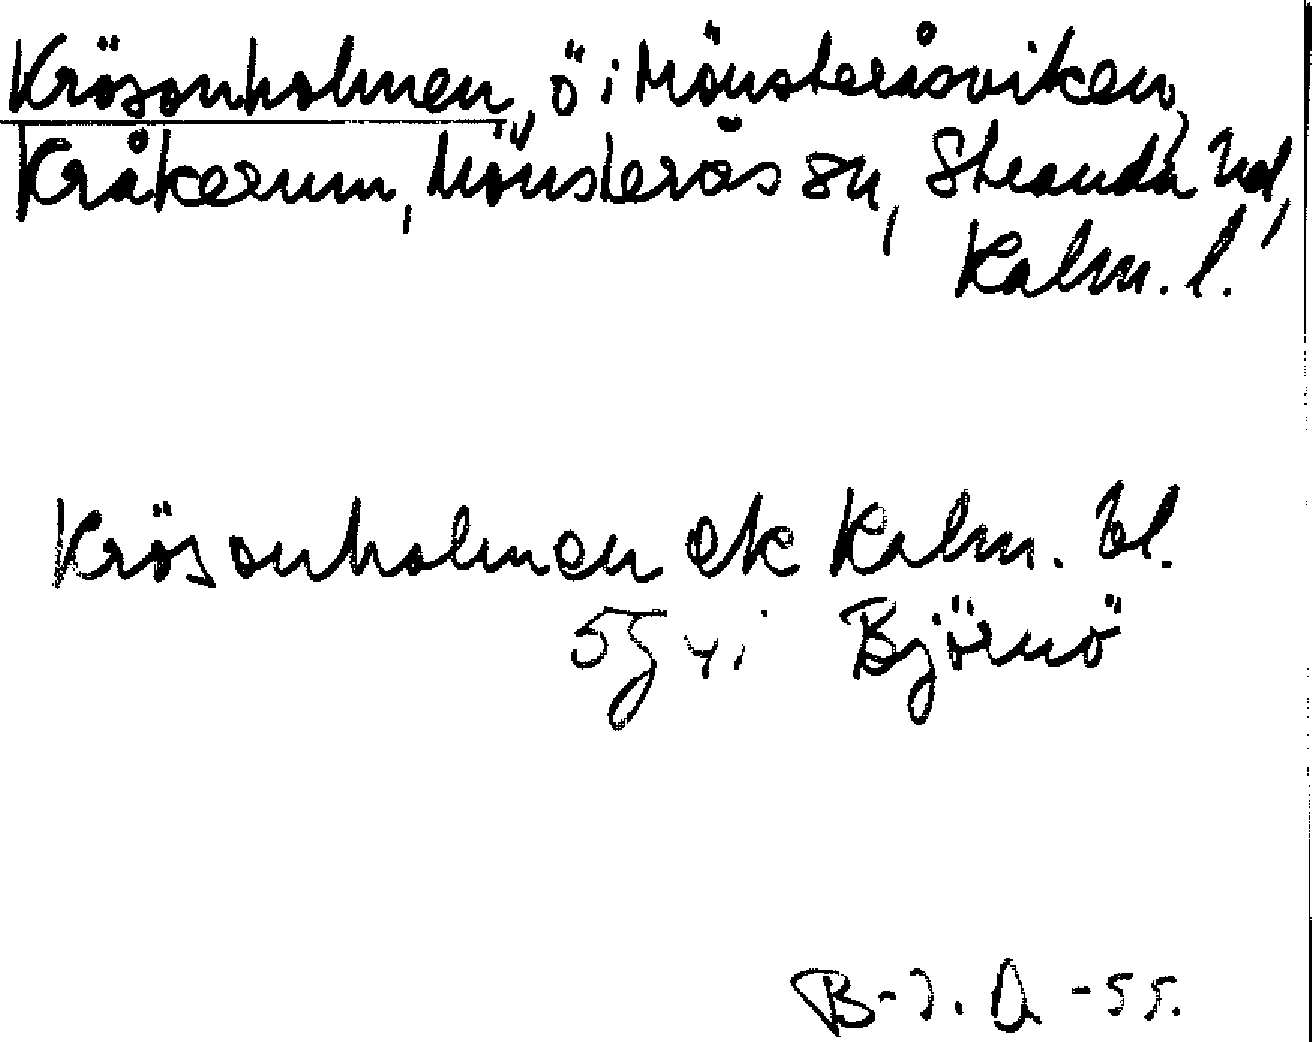 Krösonholmen, ö i Mönsteråsviken,
Kråkerum, Mönsterås sn, Stranda hd,
Kalm. l.
Krösonholmen ek Kalm. bl.
5g4i Björnö
B-J. D. -55.